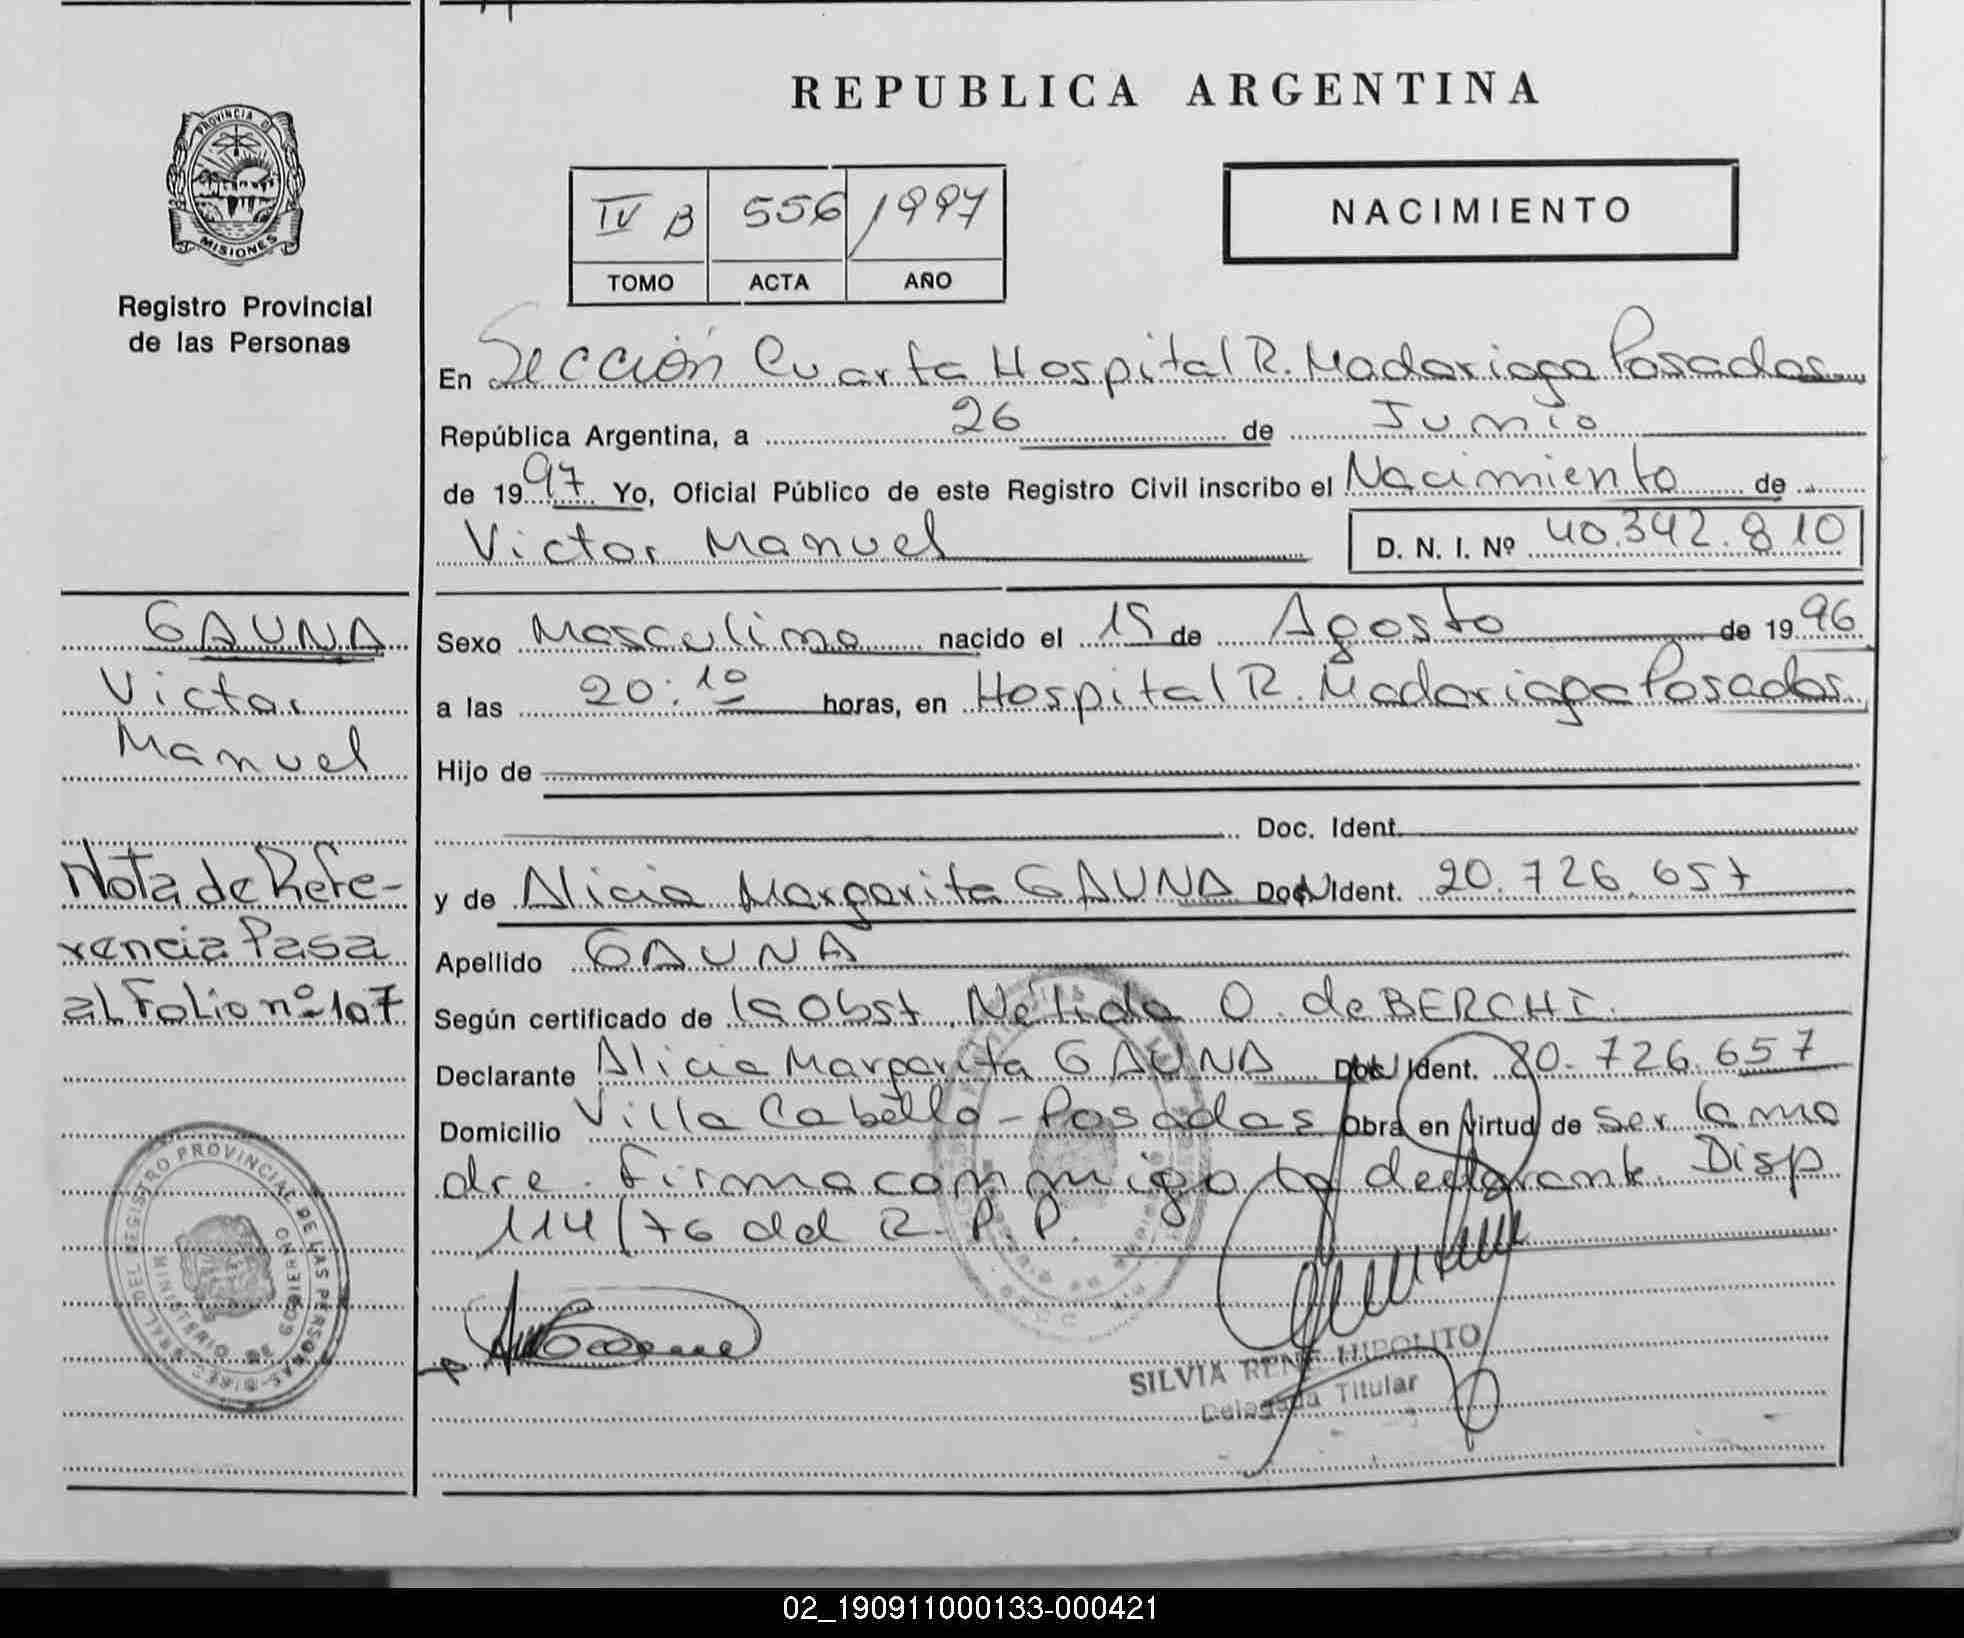 REPUBLICA ARGENTINA
PROVINCIA DE
MISIONES
Registro Provincial
de las Personas
IV B 556 1997
TOMO ACTA AÑO
NACIMIENTO
En Sección Cuarta Hospital R. Madariaga Posadas
República Argentina, a 26 de Junio
de 1997 Yo, Oficial Público de este Registro Civil inscribo el Nacimiento de
Victor Manuel D. N. I. Nº 40.342.810
GAUNA
Victor
Manuel
Sexo Masculino nacido el 15 de Agosto de 1996
a las 20:10 horas, en Hospital R. Madariaga Posadas
Hijo de
Doc. Ident.
y de Alicia Margarita GAUNA Doc. Ident. 20.726.657
Apellido GAUNA
Según certificado de la Obst. Nélida O. de BERCHI.
Declarante Alicia Margarita GAUNA Doc. Ident. 20.726.657
Domicilio Villa Cabello - Posadas Obra en virtud de ser la ma
dre. Firma conmigo la declarante. Disp
114/76 del R.P.P.
Nota de Refe-
rencia Pasa
al Folio nº 107
DEL REGISTRO PROVINCIAL DE LAS PERSONAS
MINISTERIO DE GOBIERNO
SILVIA RENE HIPOLITO
Delegada Titular
02_190911000133-000421